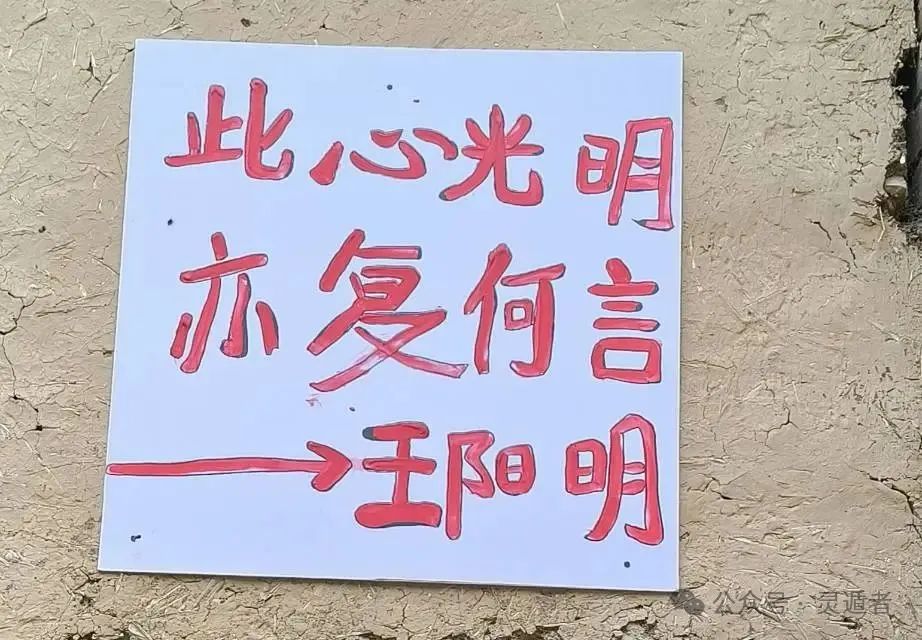 此心光明
亦复何言
→王阳明
公众号·灵遁者